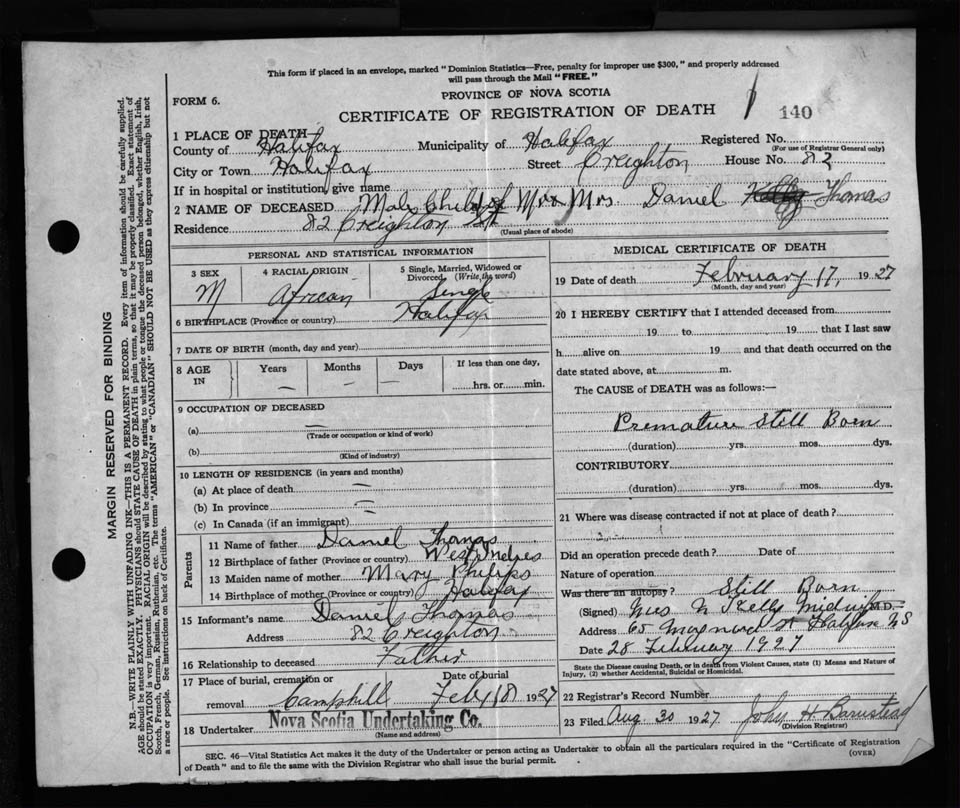 This form if placed in an envelope, marked "Dominion Statistics—Free, penalty for improper use $300," and properly addressed
will pass through the Mail "FREE."
PROVINCE OF NOVA SCOTIA
FORM 6.
CERTIFICATE OF REGISTRATION OF DEATH
140
1 PLACE OF DEATH
County of Halifax Municipality of Halifax Registered No.
(For use of Registrar General only)
City or Town Halifax Street Creighton House No. 82
If in hospital or institution, give name
2 NAME OF DECEASED Male Child of Mr & Mrs. Daniel Kelly Thomas
Residence 82 Creighton St
(Usual place of abode)
PERSONAL AND STATISTICAL INFORMATION
3 SEX 4 RACIAL ORIGIN 5 Single, Married, Widowed or
Divorced (Write the word)
M African Single
6 BIRTHPLACE (Province or country) Halifax
7 DATE OF BIRTH (month, day and year)
8 AGE IN Years Months Days If less than one day,
— — — hrs. or min.
9 OCCUPATION OF DECEASED
(a) —
(Trade or occupation or kind of work)
(b)
(Kind of industry)
10 LENGTH OF RESIDENCE (in years and months)
(a) At place of death —
(b) In province —
(c) In Canada (if an immigrant)
Parents
11 Name of father Daniel Thomas
12 Birthplace of father (Province or country) West Indies
13 Maiden name of mother Mary Philips
14 Birthplace of mother (Province or country) Halifax
15 Informant's name Daniel Thomas
Address 82 Creighton
16 Relationship to deceased Father
17 Place of burial, cremation or Date of burial
removal Camphill Feby 18 1927
18 Undertaker Nova Scotia Undertaking Co.
(Name and address)
MEDICAL CERTIFICATE OF DEATH
19 Date of death February 17, 1927
(Month, day and year)
20 I HEREBY CERTIFY that I attended deceased from
19 to 19 that I last saw
h alive on 19 and that death occurred on the
date stated above, at m.
The CAUSE of DEATH was as follows:—
Premature Still Born
(duration) yrs. mos. dys.
CONTRIBUTORY
(duration) yrs. mos. dys.
21 Where was disease contracted if not at place of death?
Did an operation precede death? Date of
Nature of operation
Was there an autopsy? Still Born
(Signed) Mrs N Kelly Midwife M.D.
Address 65 Maynard St Halifax N S
Date 28 February 1927
State the Disease causing Death, or in death from Violent Causes, state (1) Means and Nature of
Injury, (2) whether Accidental, Suicidal or Homicidal.
22 Registrar's Record Number
23 Filed Aug 30 1927
(Division Registrar)
SEC. 46—Vital Statistics Act makes it the duty of the Undertaker or person acting as Undertaker to obtain all the particulars required in the "Certificate of Registration
of Death" and to file the same with the Division Registrar who shall issue the burial permit.
(OVER)
MARGIN RESERVED FOR BINDING
N.B.—WRITE PLAINLY WITH UNFADING INK—THIS IS A PERMANENT RECORD. Every item of information should be carefully supplied.
AGE should be stated EXACTLY. PHYSICIANS should STATE CAUSE OF DEATH in plain terms, so that it may be properly classified. Exact statement of
OCCUPATION is very important. RACIAL ORIGIN will be described by stating to what people or tongue the deceased person belonged, whether English, Irish,
Scotch, French, German, Russian, Ruthenian, etc. The terms "AMERICAN" or "CANADIAN" SHOULD NOT BE USED as they express citizenship but not
a race or people. See instructions on back of Certificate.